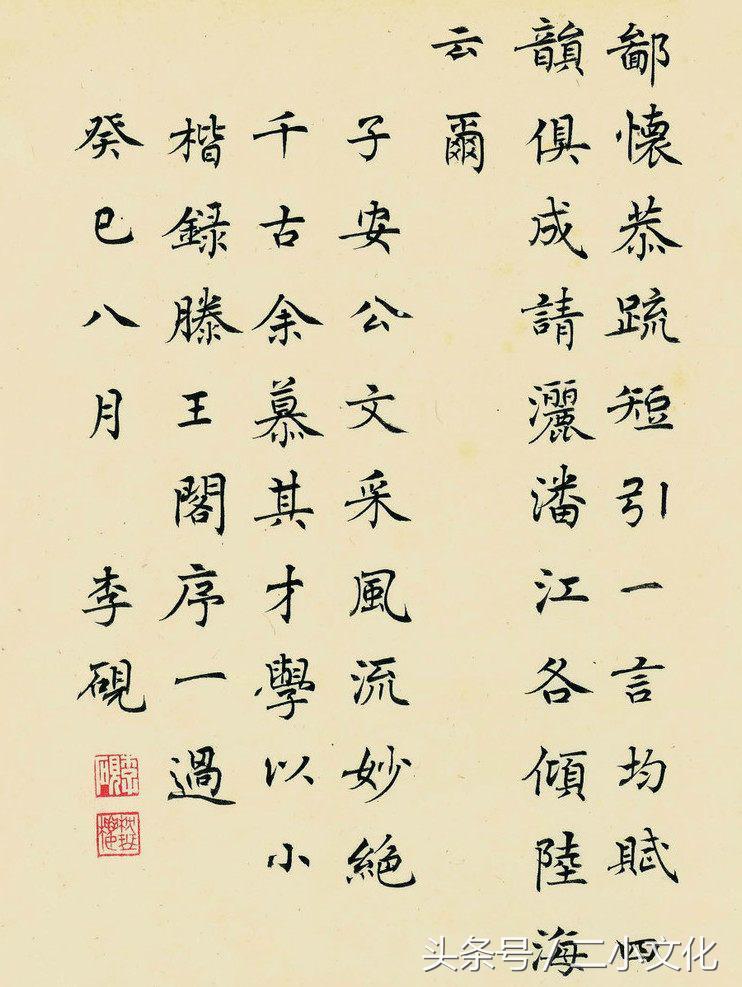 鄙懷恭疏短引一言均賦四
韻俱成請灑潘江各傾陸海
云爾
子安公文采風流妙絕
千古余慕其才學以小
楷錄滕王閣序一過
癸巳八月 李硯
头条号/二小文化